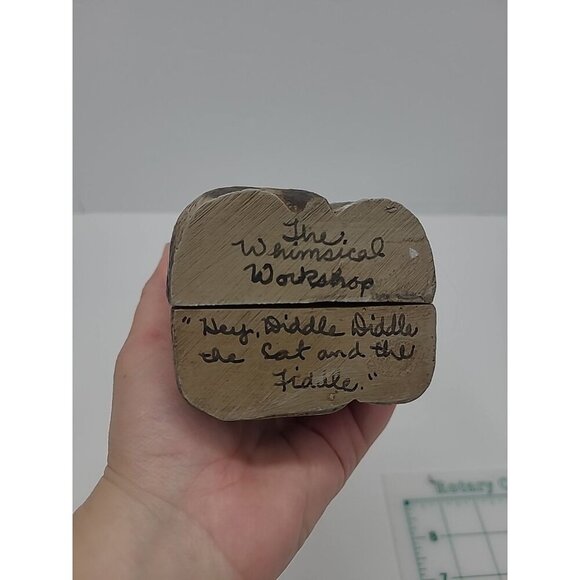 The
Whimsical
Workshop
"Hey, Diddle Diddle
the Cat and the
Fiddle."
Rotary
8
7